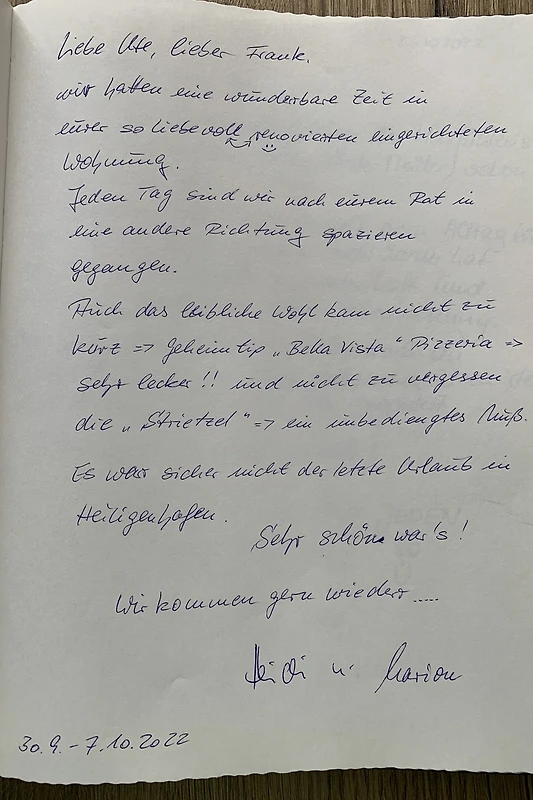 Liebe Ute, lieber Frank.
wir hatten eine wunderbare Zeit in
eurer so liebevoll renovierten eingerichteten
Wohnung.
Jeden Tag sind wir nach eurem Rat in
eine andere Richtung spazieren
gegangen.
Auch das leibliche Wohl kam nicht zu
kurz => Geheimtip „Bella Vista" Pizzeria =>
sehr lecker!! und nicht zu vergessen
die „Strietzel" => ein unbediengtes Muß.
Es war sicher nicht der letzte Urlaub in
Heiligenhafen.
Sehr schön war's!
Wir kommen gern wieder.....
Heidi u. Marion
30.9.-7.10.2022